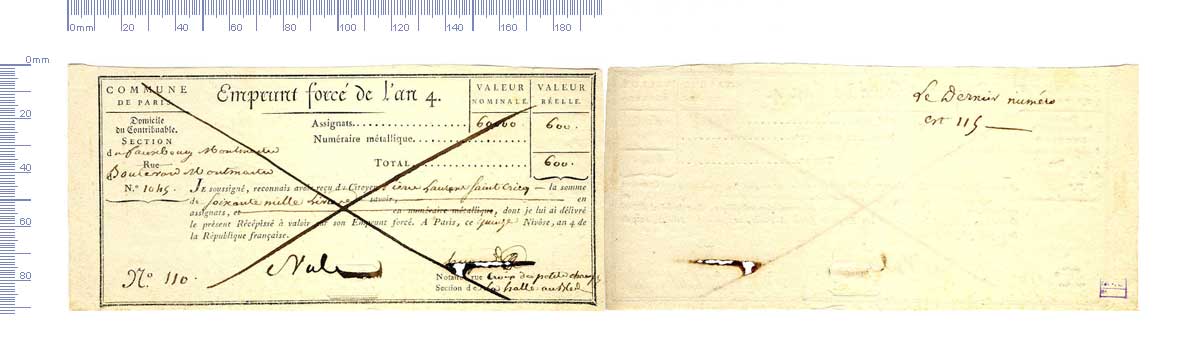 0mm 20 40 60 80 100 120 140 160 180
0mm
20
40
60
80
COMMUNE
DE PARIS.
Domicile
du Contribuable.
SECTION
du fauxbourg Montmartre
Rue
Boulevard Montmartre
N.° 1045.
Emprunt forcé de l'an 4.
VALEUR NOMINALE.
VALEUR RÉELLE.
Assignats. 60,000 600.
Numéraire métallique.
TOTAL 600.
JE soussigné, reconnais avoir reçu du Citoyen Pierre Laurent Saint Cricq — la somme
de Soixante mille Livres savoir, en
assignats, et en numéraire métallique, dont je lui ai délivré
le présent Récépissé à valoir sur son Emprunt forcé. A Paris, ce quinze Nivôse, an 4 de
la République française.
N.° 110.
Nul
Notaire, rue Croix des petits champs
Section de la halle au bled
Le Dernier numéro
est 115